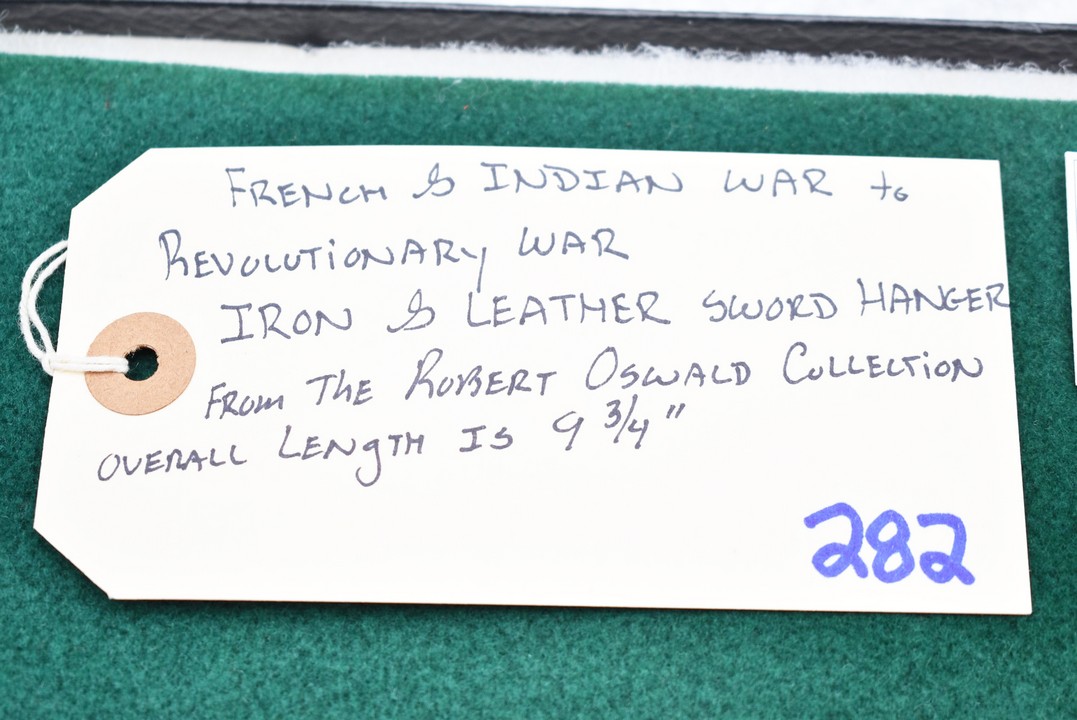 FRENCH & INDIAN WAR to
REVOLUTIONARY WAR
IRON & LEATHER SWORD HANGER
FROM THE ROBERT OSWALD COLLECTION
OVERALL LENGTH IS 9 3/4"
282